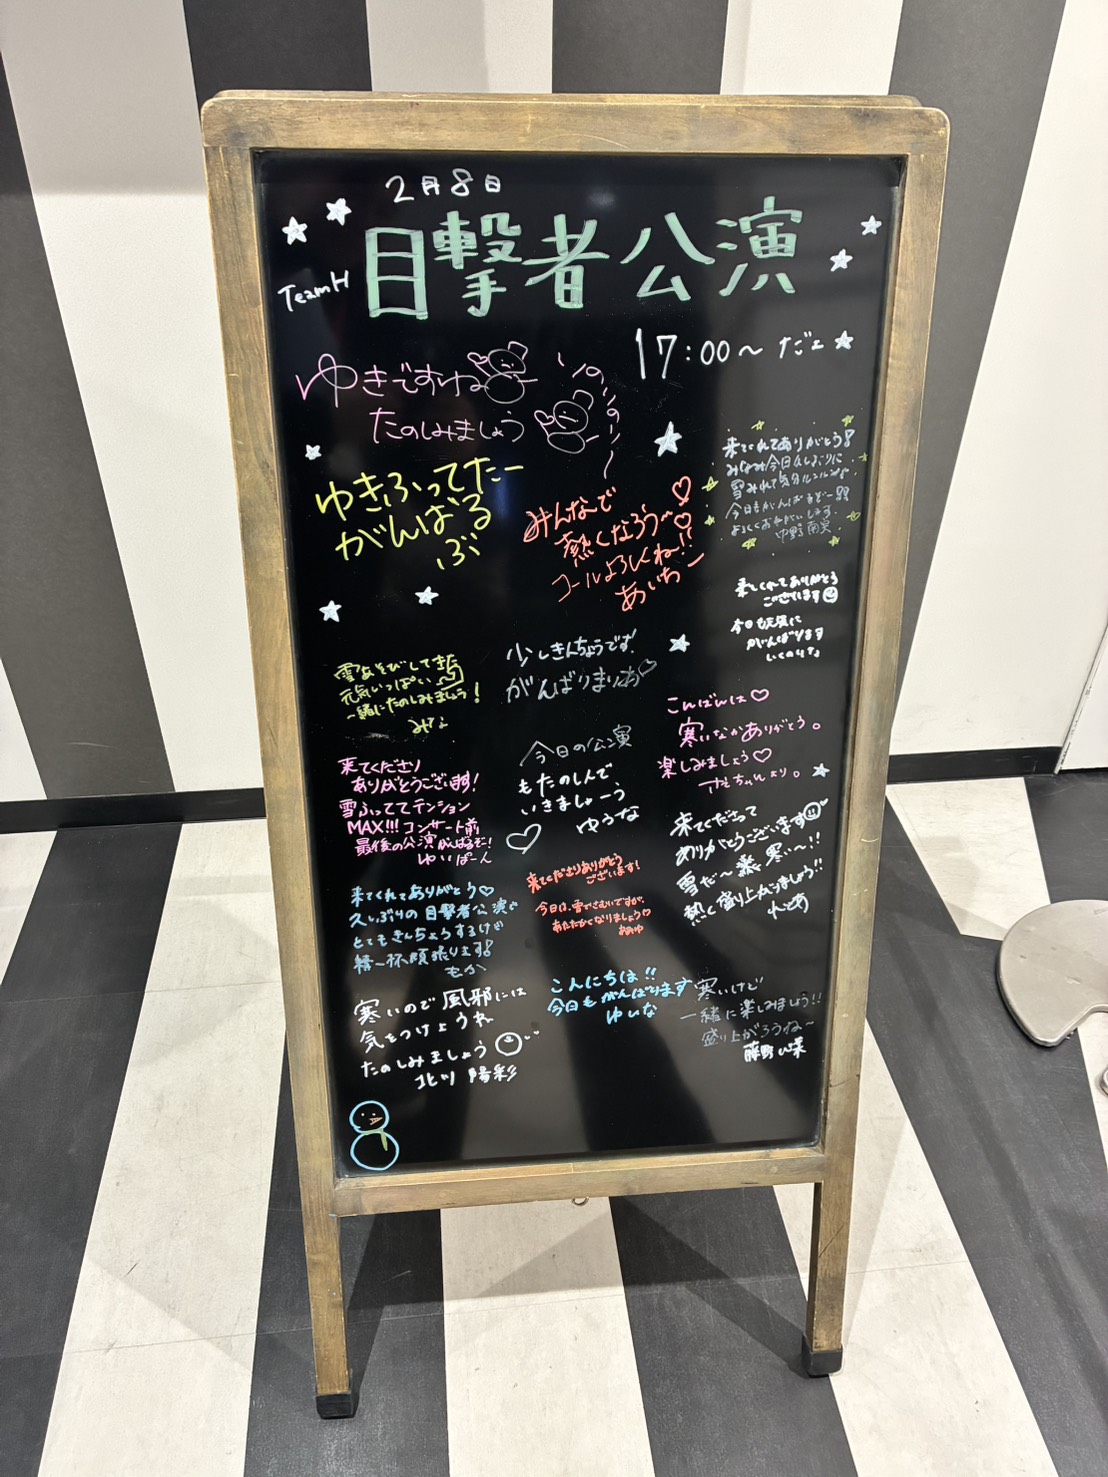 2月8日
TeamH
目撃者公演
17:00〜 だェ
ゆきですね
たのしみましょう
ゆきふってたー
がんばる
ぶ
みんなで
熱くなろう〜♡♡
コールよろしくね!!
あいちー
来てくれてありがとう!
みなみ今日久しぶりに
雪みれて気分ルンルン♪
今日もがんばるぞー!!
よろしくおねがいします
中野 南実
来てくれてありがとう
ございます
今日も元気に
がんばります
いくのりな
雪あそびしてきた
元気いっぱい
一緒にたのしみましょう!
みな
少しきんちょうです!
がんばりまりあ♡
こんばんは♡
寒いなかありがとう。
楽しみましょう♡
ちゃんより。
来てくださり
ありがとうございます!
雪ふっててテンション
MAX!!! コンサート前
最後の公演がんばるぞー!
ゆいぱーん
今日の公演
もたのしんで
いきましょーう
ゆうな
来てくださって
ありがとうございます
雪だ〜 寒い〜!!
熱く盛り上がりましょう!!
れとあ
来てくださりありがとう
ございます!
今日は、雪でさむいですが、
あたたかくなりましょう♡
来てくれてありがとう♡
久しぶりの目撃者公演で
とてもきんちょうするけど
精一杯頑張ります!
もか
こんにちは!!
今日もがんばります
ゆいな
寒いけど
一緒に楽しみましょう!!
盛り上がろうね〜
藤野 心菜
寒いので風邪には
気をつけようね
たのしみましょう
北川 陽彩